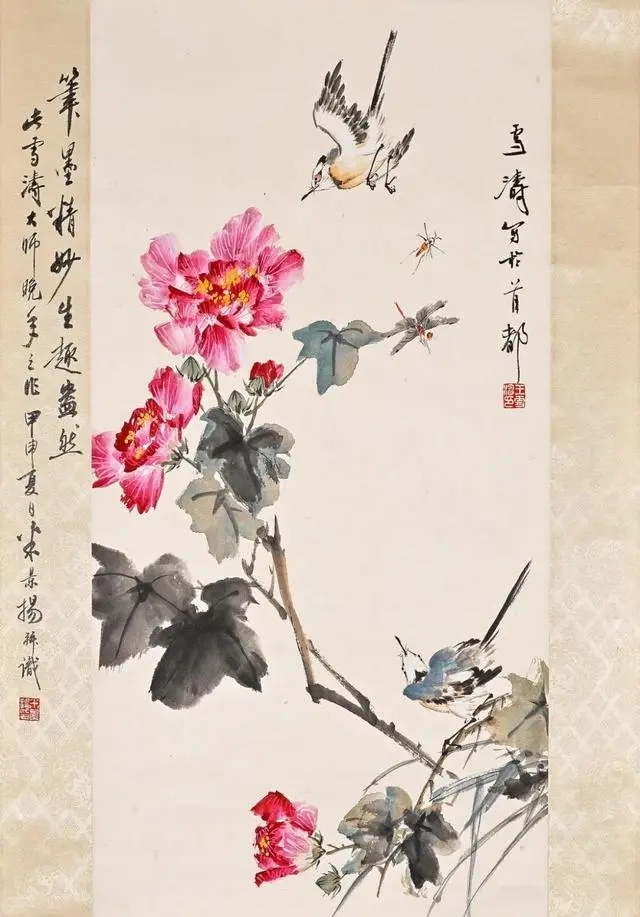 雪濤写於首都
筆墨精妙生趣盎然
此雪濤大师晚年之作甲申夏日米景揚識